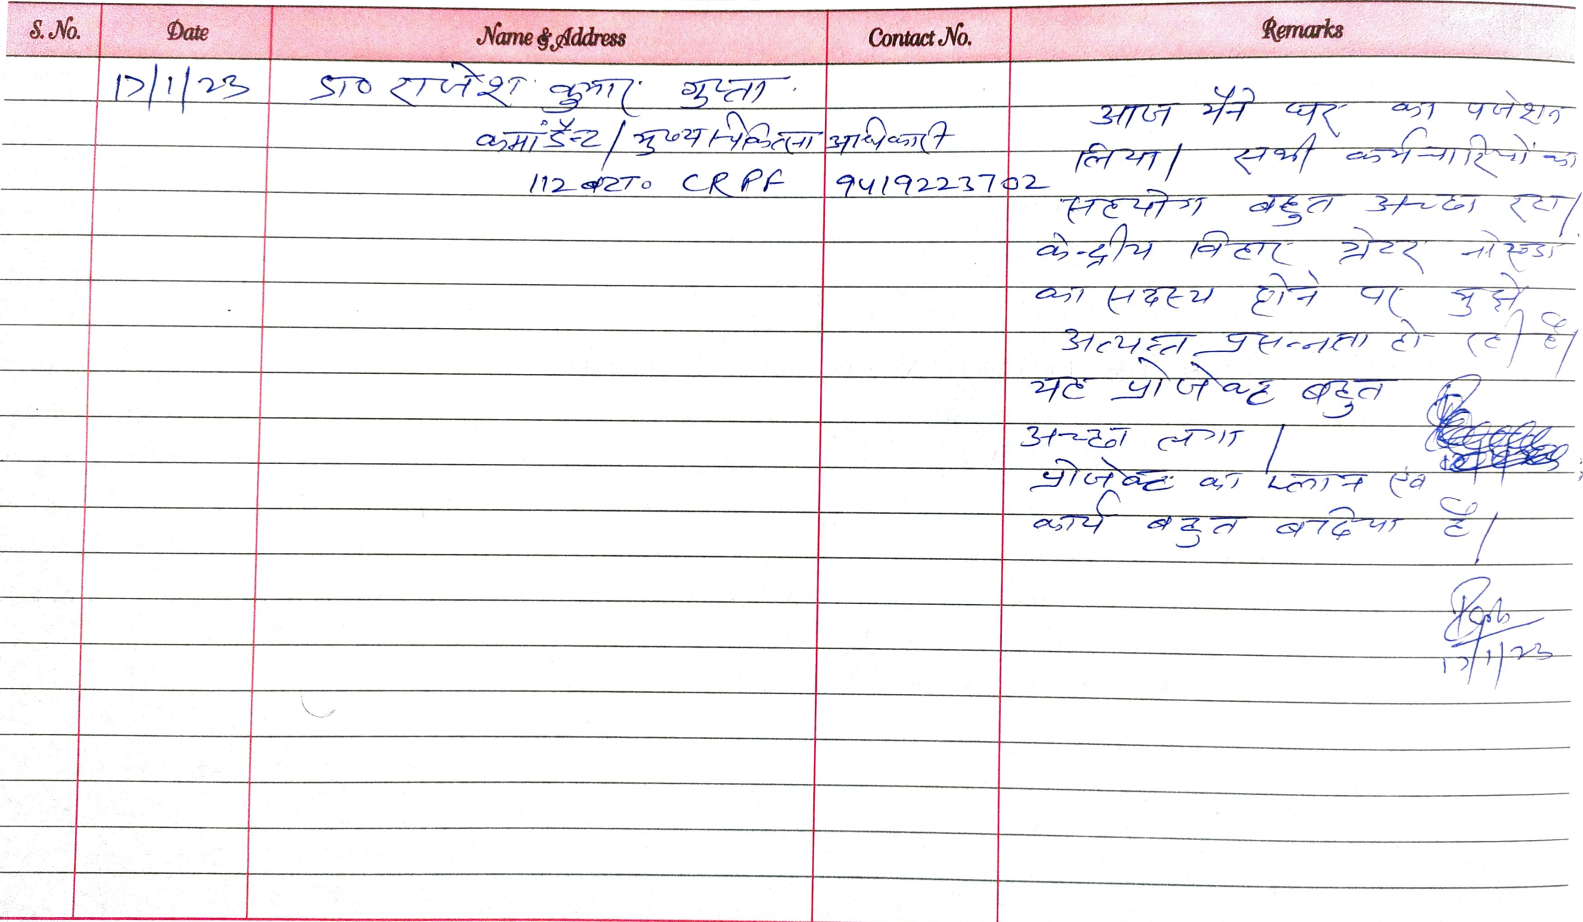 S. No. Date Name & Address Contact No. Remarks
17/1/23 डा० राजेश कुमार गुप्ता
कमांडैन्ट / मुख्य चिकित्सा अधिकारी
112 बटा० CRPF 9419223702
आज मैने घर का पजेशन
लिया। सभी कर्मचारियों का
सहयोग बहुत अच्छा रहा।
केन्द्रीय विहार ग्रेटर नोएडा
का सदस्य होने पर मुझे
अत्यन्त प्रसन्नता हो रही है।
यह प्रोजेक्ट बहुत
अच्छा लगा।
प्रोजेक्ट का प्लान एवं
कार्य बहुत बढिया है।
17/1/23